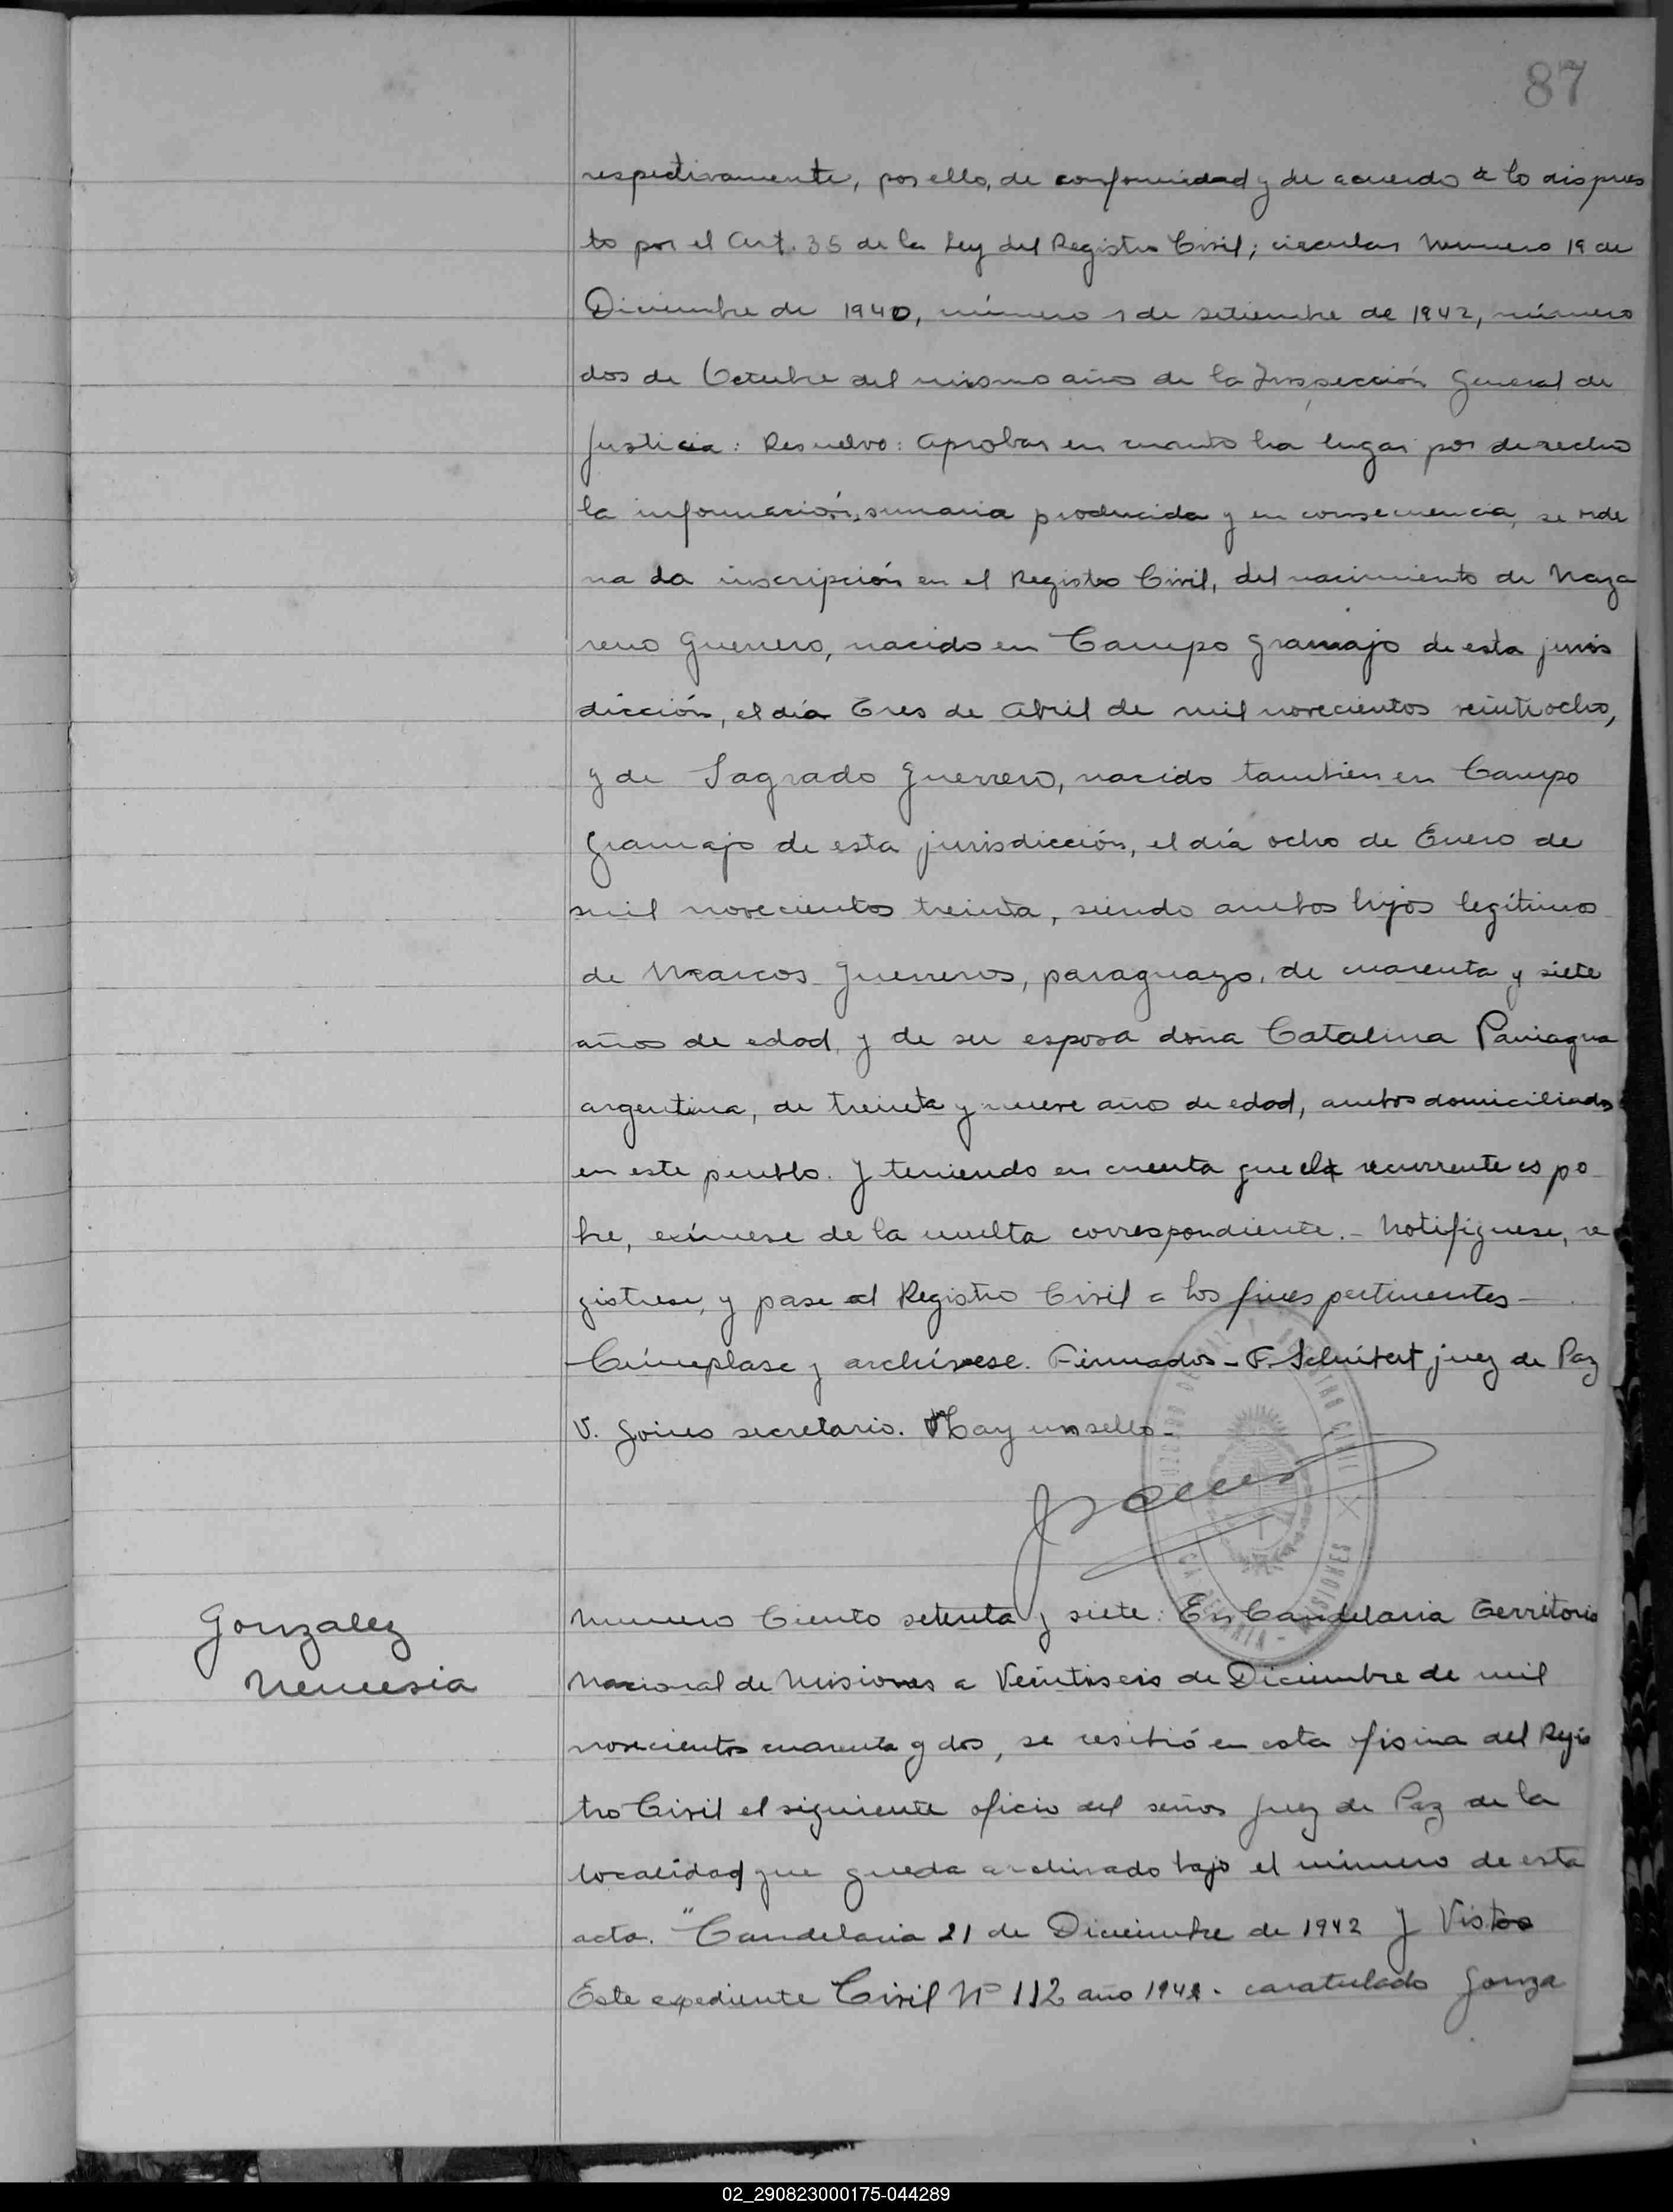 87
respectivamente, por ello, de conformidad y de acuerdo a lo dispues
to por el Art. 35 de la Ley del Registro Civil; circular Numero 19 de
Diciembre de 1940, número 1 de setiembre de 1942, número
dos de Octubre del mismo año de la Inspección General de
Justicia: Resuelvo: Aprobar en cuanto ha lugar por derecho
la información, sumaria producida y en consecuencia, se orde
na la inscripción en el Registro Civil, del nacimiento de Naza
reno Guerrero, nacido en Campo Gramajo de esta juris
dicción, el día Tres de Abril de mil novecientos veintiocho,
y de Sagrado Guerrero, nacido tambien en Campo
Gramajo de esta jurisdicción, el día ocho de Enero de
mil novecientos treinta, siendo ambos hijos legítimos
de Marcos Guerreros, paraguayo, de cuarenta y siete
años de edad, y de su esposa doña Catalina Paniagua
argentina, de treinta y nueve años de edad, ambos domiciliados
en este pueblo. Y teniendo en cuenta que el recurrente es po
bre, exímese de la multa correspondiente. - Notifíquese, re
gistrese, y pase al Registro Civil a los fines pertinentes —
Cúmplase y archívese. Firmados - F. Schubert juez de Paz
V. Goires secretario. Hay un sello -
REGISTRO CIVIL
CANDELARIA - MISIONES
Gonzalez
Nemesia
Numero Ciento setenta y siete: En Candelaria Territorio
Nacional de Misiones a Veintiseis de Diciembre de mil
novecientos cuarenta y dos, se resibió en esta ofisina del Regis
tro Civil el siguiente oficio del señor Juez de Paz de la
localidad que queda archivado bajo el número de esta
acta. "Candelaria 21 de Diciembre de 1942 Y Vistos
Este expediente Civil Nº 112 año 1942. caratulado Gonza
02_290823000175-044289